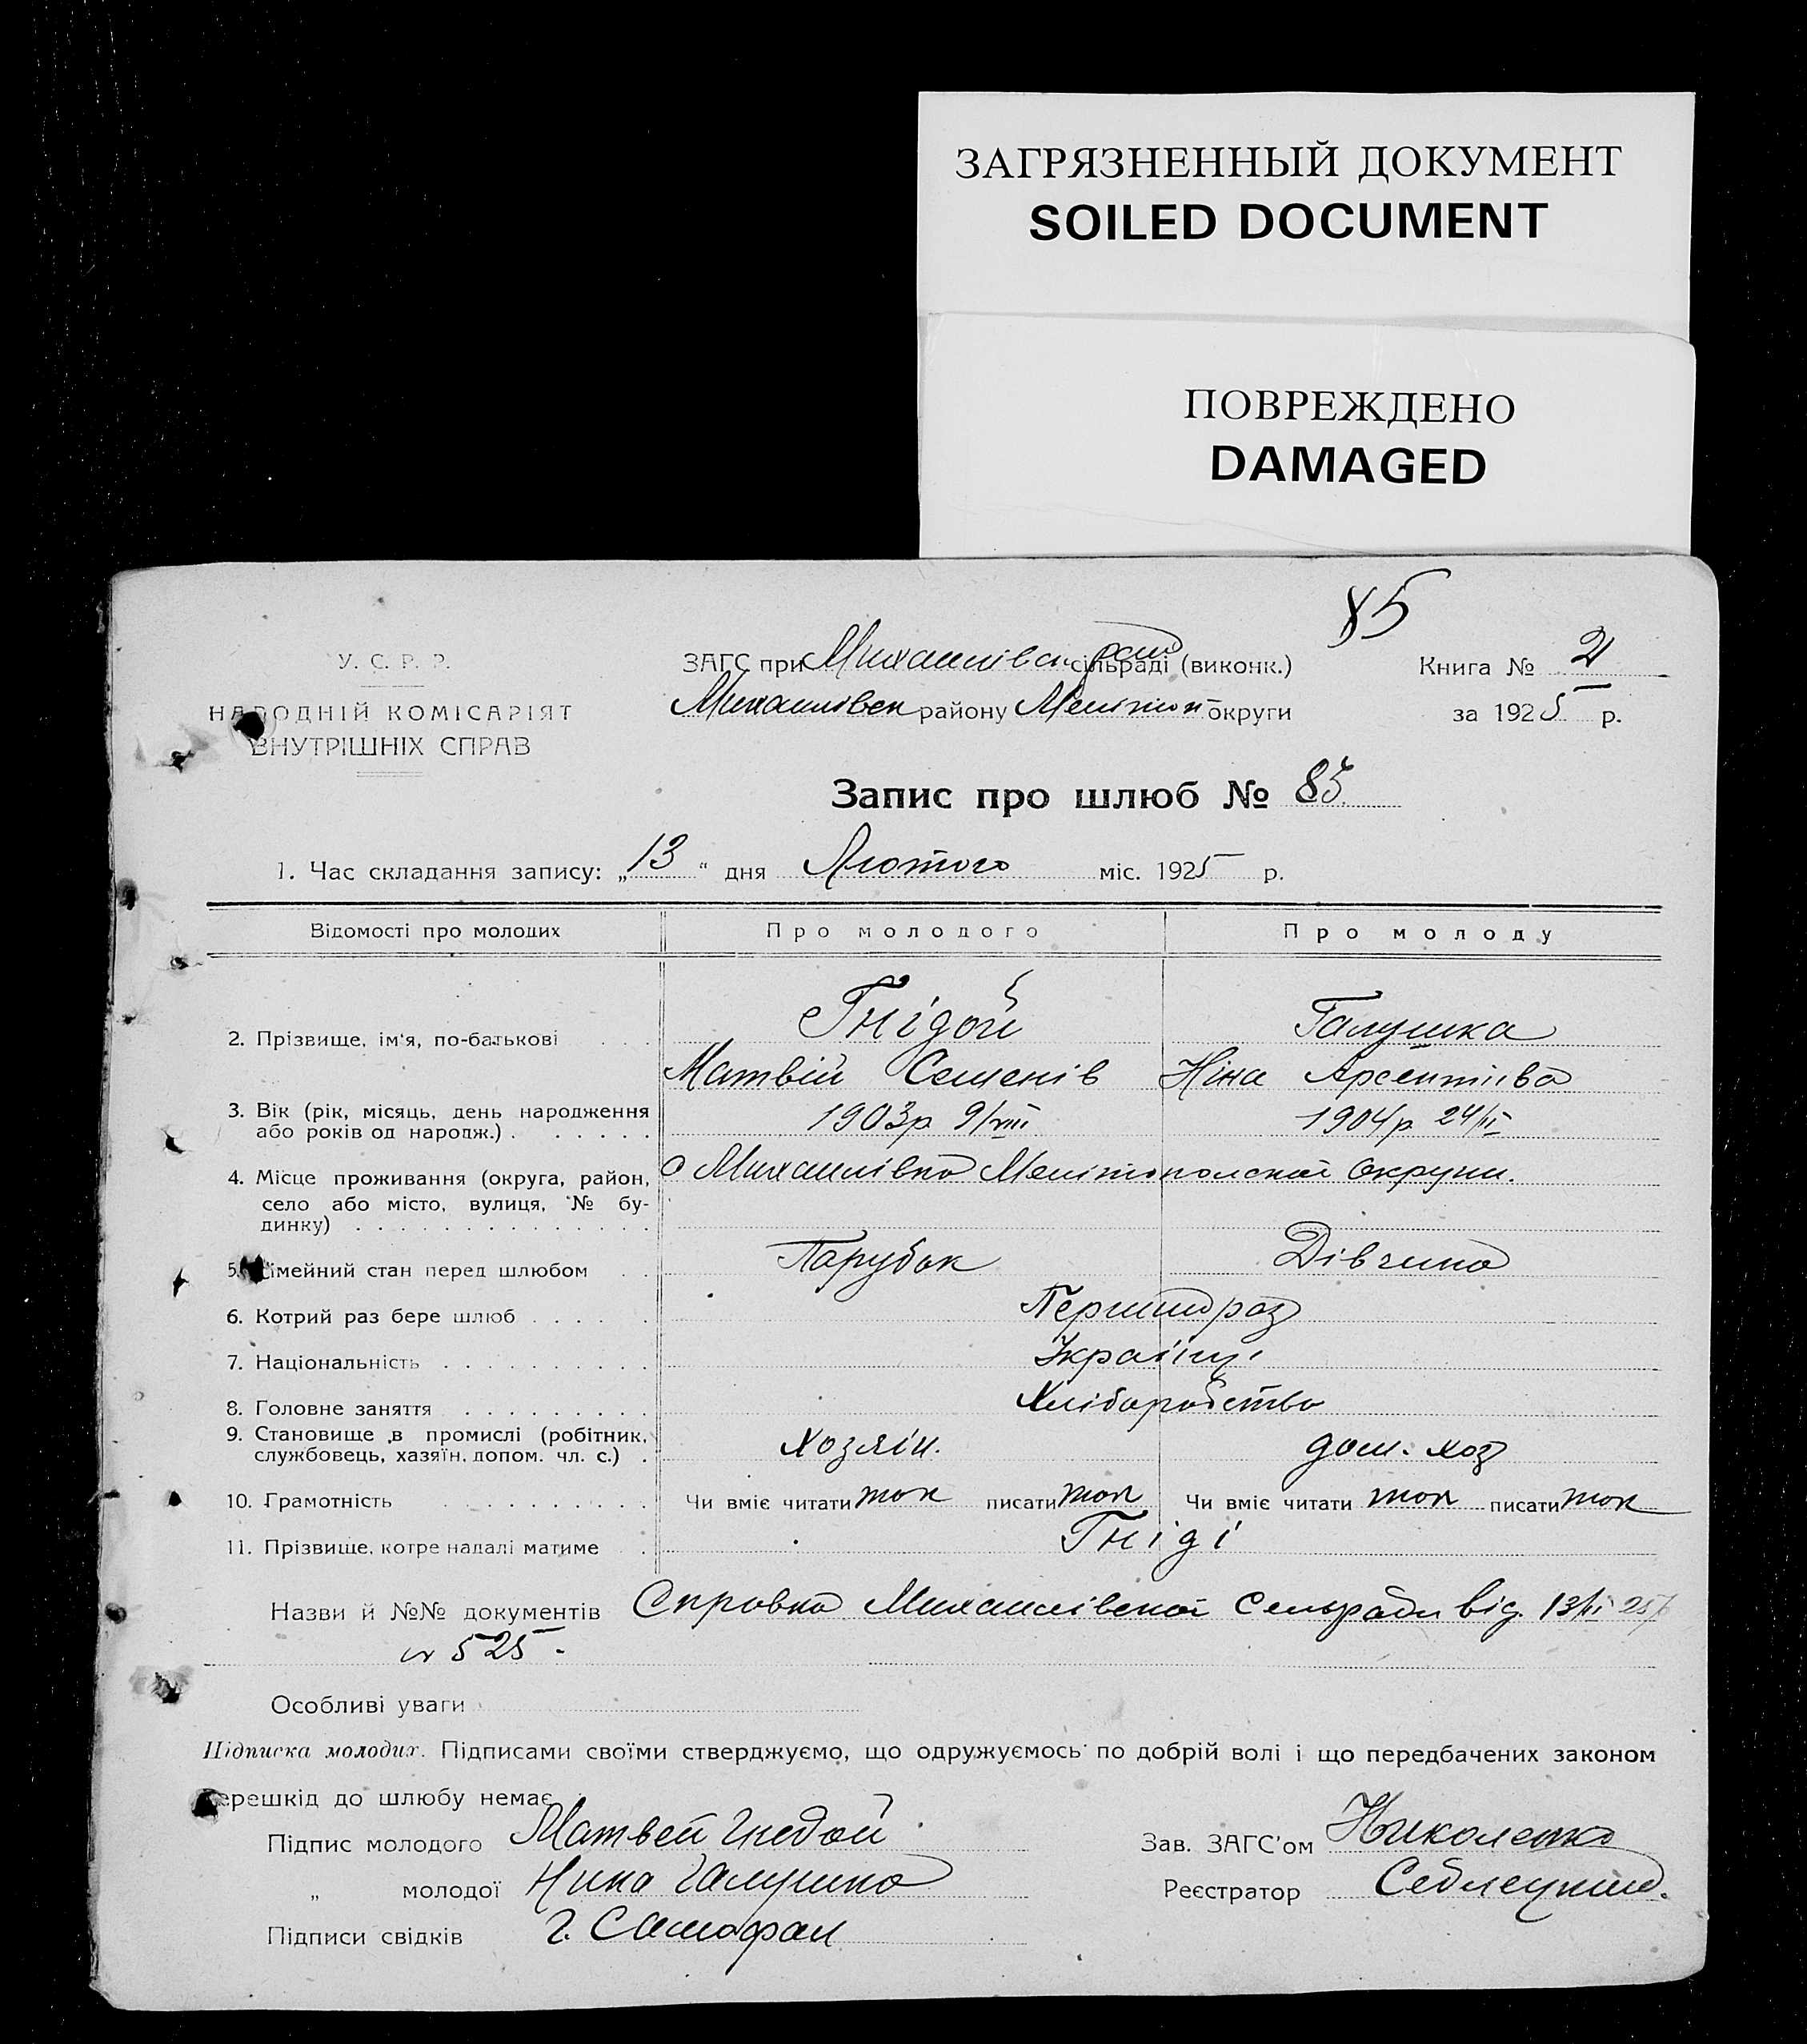 ЗАГРЯЗНЕННЫЙ ДОКУМЕНТ
SOILED DOCUMENT
ПОВРЕЖДЕНО
DAMAGED
85
У. С. Р. Р.
НАРОДНІЙ КОМІСАРІЯТ
ВНУТРІШНІХ СПРАВ
ЗАГС при Михайлівск. сільраді (виконк.)
Михайлівск району Мелітоп округи
Книга № 2
за 1925 р.
Запис про шлюб № 85
1. Час складання запису: „13“ дня Лютого міс. 1925 р.
Відомості про молодих Про молодого Про молоду
2. Прізвище, ім'я, по-батькові . . . Гнідой Галушка
Матвій Семенів Ніна Арсентіїва
3. Вік (рік, місяць, день народження
або років од народж.) . . . . . . 1903р 9/VIII 1904р. 24/II
4. Місце проживання (округа, район,
село або місто, вулиця, № бу-
динку) . . . . . . . . . . . . . . .
с Михайлівка Мелітопольскої округи.
5. Сімейний стан перед шлюбом . . Парубок Дівчина
6. Котрий раз бере шлюб . . . . . Перший раз
7. Національність . . . . . . . . . . Українці
8. Головне заняття . . . . . . . . . Хліборобство
9. Становище в промислі (робітник,
службовець, хазяїн, допом. чл. с.) . Хозяїн. дом. хоз
10. Грамотність . . . . . . . . . . Чи вміє читати так писати так Чи вміє читати так писати так
11. Прізвище, котре надалі матиме . Гніді
Назви й №№ документів Справка Михайлівскої Сельради від. 13/II 25
№ 525.
Особливі уваги
Підписка молодих. Підписами своїми стверджуємо, що одружуємось по добрій волі і що передбачених законом
перешкід до шлюбу немає
Підпис молодого Матвей Гнедой
„ молодої Нина Галушка
Підписи свідків Г. Самофал
Зав. ЗАГС'ом Николенко
Реєстратор